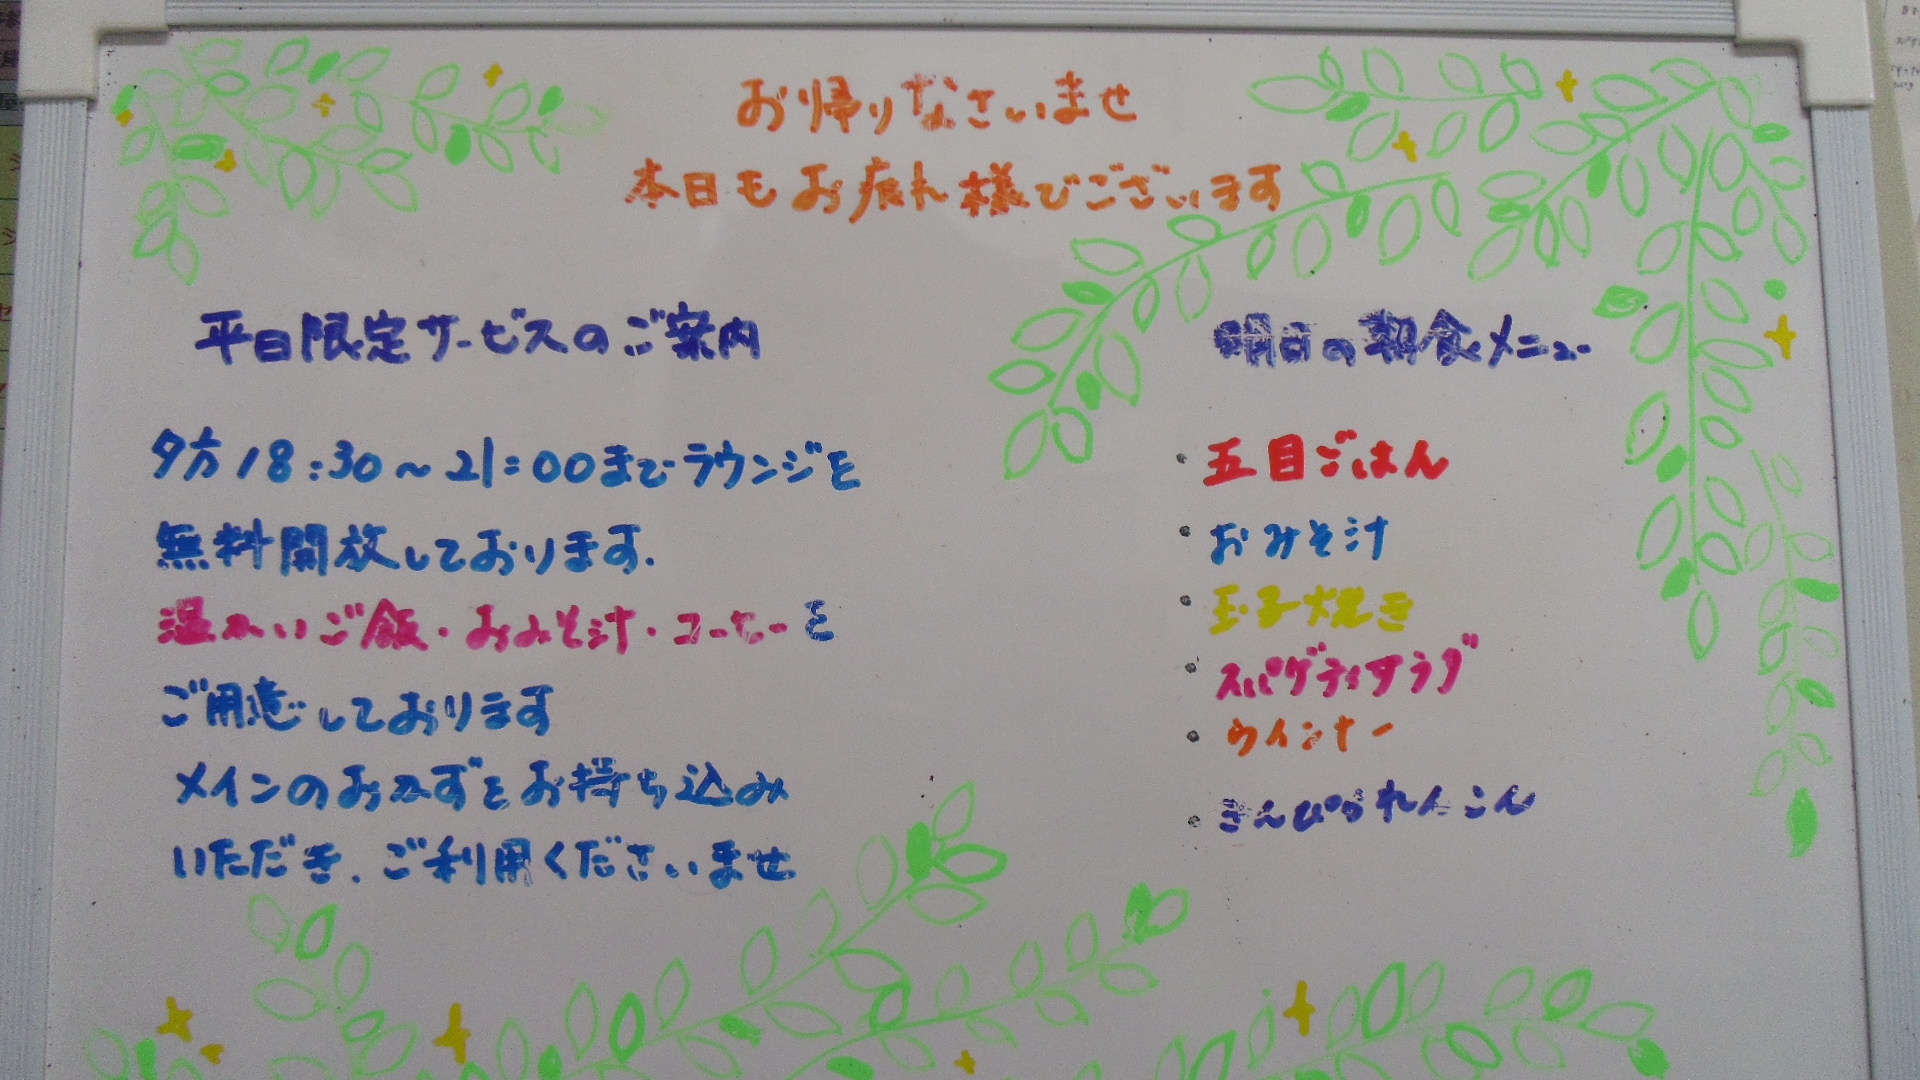 お帰りなさいませ
本日もお疲れ様でございます
平日限定サービスのご案内
夕方18:30～21:00までラウンジを
無料開放しております.
温かいご飯・おみそ汁・コーヒーを
ご用意しております
メインのおかずをお持ち込み
いただき、ご利用くださいませ
明日の朝食メニュー
・五目ごはん
・おみそ汁
・玉子焼き
・スパゲティサラダ
・ウインナー
・きんぴられんこん